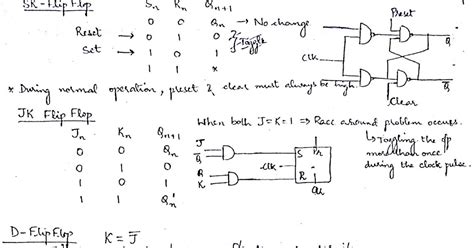 SR-Flip Flop
Sn Rn Qn+1
0 0 Qn → No change
Reset → 0 1 0
Set → 1 0 1
Toggle
1 1 *
Preset
Clk
Q
Q̅
Clear
* During normal operation, preset & clear must always be high.
JK Flip Flop
When both J=K=1 ⇒ Race around problem occurs.
↳ Toggling the o/p
more than once
during the clock pulse.
Jn Kn Qn+1
0 0 Qn
0 1 0
1 0 1
1 1 Qn'
J
Q̅
Q
K
Clk
S Pr
R
D-Flip Flop K = J̅